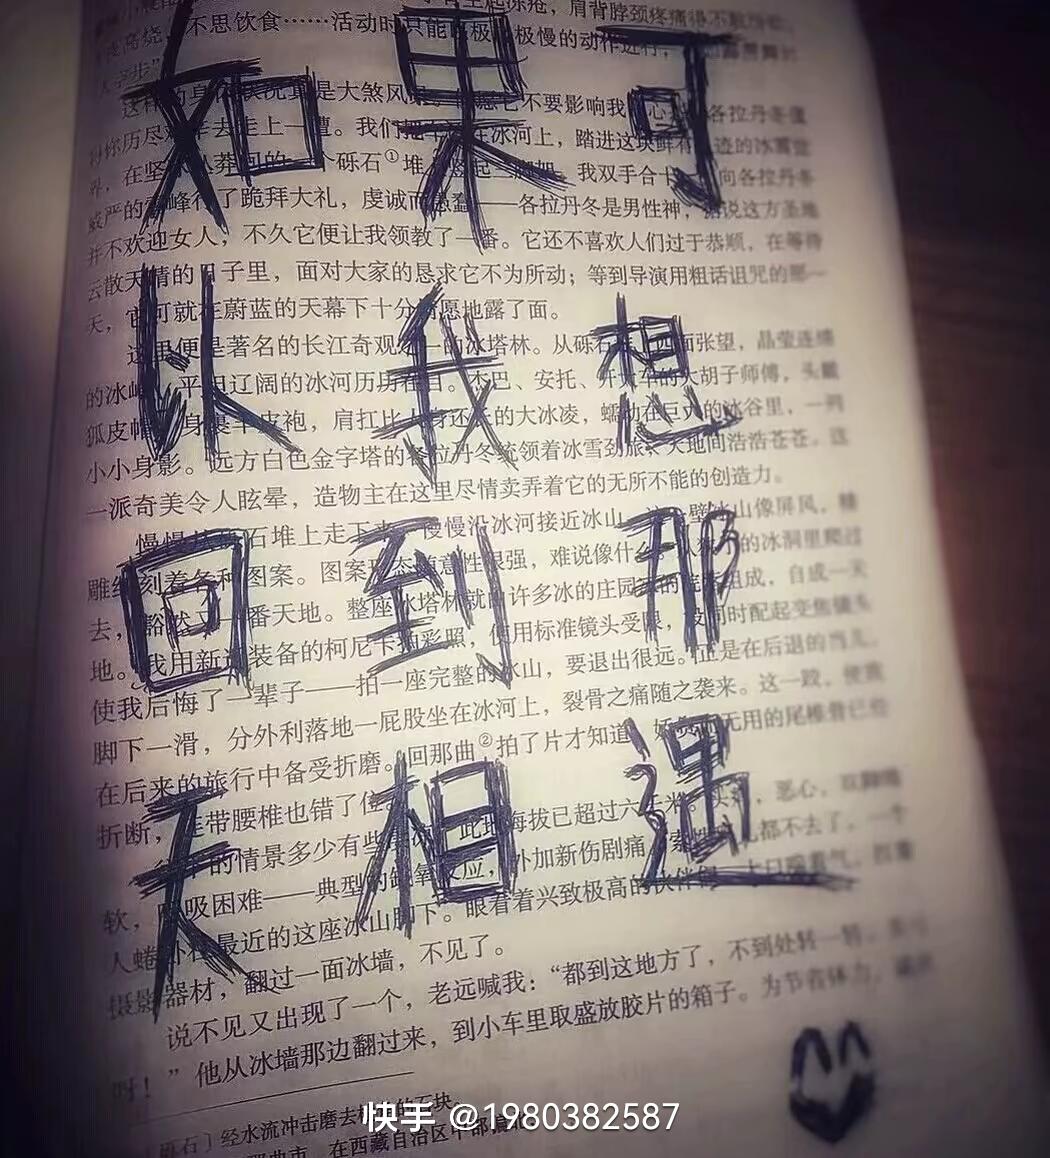 如果可
以我想
回到那
天相遇
不思饮食……活动时只能
极慢的动作进行，
是大煞风
不要影响我
各拉丹冬值
去走上一遭。我们把
在冰河上，踏进这块鲜有
迹的冰雪世
界，在坚
莽间的一个砾石①堆
我双手合十
向各拉丹冬
威严的
峰行了跪拜大礼，虔诚而愚蠢——各拉丹冬是男性神，据说这方圣地
并不欢迎女人，不久它便让我领教了一番。它还不喜欢人们过于恭顺，在等待
云散天晴的日子里，面对大家的恳求它不为所动；等到导演用粗话诅咒的那一
天，它可就在蔚蓝的天幕下十分情愿地露了面。
这里便是著名的长江奇观之一的冰塔林。从砾石
面张望，晶莹连绵
的冰峰、平坦辽阔的冰河历历在目。杰巴、安托、开大车的大胡子师傅，头戴
狐皮帽，身裹羊皮袍，肩扛比人身还长的大冰凌，蠕动在巨大的冰谷里，一列
小小身影。远方白色金字塔的各拉丹冬统领着冰雪劲旅，天地间浩浩苍苍。这
一派奇美令人眩晕，造物主在这里尽情卖弄着它的无所不能的创造力。
慢慢从
石堆上走下来，慢慢沿冰河接近冰山。
壁冰山像屏风，精
雕细刻着各种图案。图案形态随意性很强，难说像什么。从狭小的冰洞里爬过
去，豁然又一番天地。整座冰塔林就由许多冰的庄园
组成，自成一天
地。我用新近装备的柯尼卡拍彩照，使用标准镜头受限，没同时配起变焦镜头
使我后悔了一辈子——拍一座完整的冰山，要退出很远。正是在后退的当儿，
脚下一滑，分外利落地一屁股坐在冰河上，裂骨之痛随之袭来。这一跤，使我
在后来的旅行中备受折磨。回那曲②拍了片才知道，
无用的尾椎骨已经
折断，连带腰椎也错了位。
的情景多少有些
此地海拔已超过六千米。
恶心，双脚绵
软，呼吸困难——典型的缺氧反应，外加新伤剧痛，索性
都不去了。一个
人蜷卧在最近的这座冰山脚下。眼看着兴致极高的伙伴们
摄影器材，翻过一面冰墙，不见了。
说不见又出现了一个，老远喊我：“都到这地方了，不到处转一转，
呀！”他从冰墙那边翻过来，到小车里取盛放胶片的箱子。为节省体力，
〔砾石〕经水流冲击磨去棱角的石块。
在西藏自治区中部偏北
快手 @1980382587